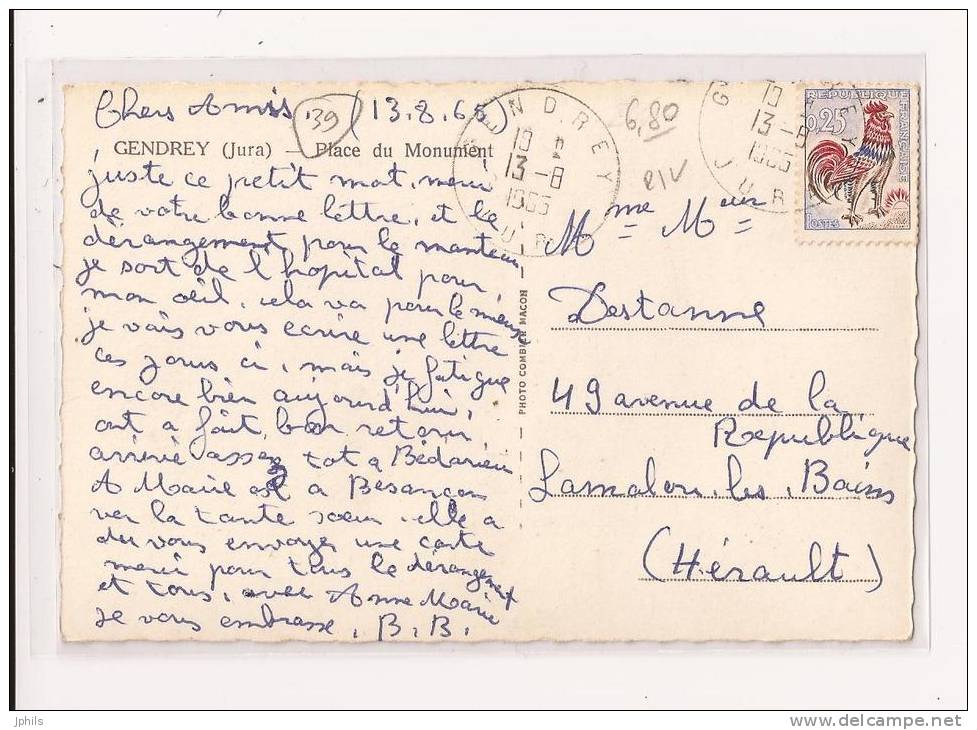 Chers Amis, 13.8.65
39
GENDREY (Jura) — Place du Monument
juste ce petit mot, merci
de votre bonne lettre, et le
dérangement pour le manteau
je sort de l'hopital pour
mon oeil, cela va pour le mieux
je vais vous ecrire une lettre
ces jours ci, mais je fatigue
encore bien aujourd'hui,
ont a fait bon retour,
arrivé assez tot a Bédarieu
A Marie est a Besançon
ver la tante soeur, elle a
du vous envoyer une carte
merci pour tous le dérangement
et tous, avec Anne Marie
je vous embrasse, B.B.
PHOTO COMBIER MACON
GENDREY
19
13-8
1965
JURA
6,80
REPUBLIQUE FRANÇAISE
0,25
POSTES
Mme Meur
Destanne
49 avenue de la
Republique
Lamalou, les, Bains
(Hérault)
jphils
www.delcampe.net